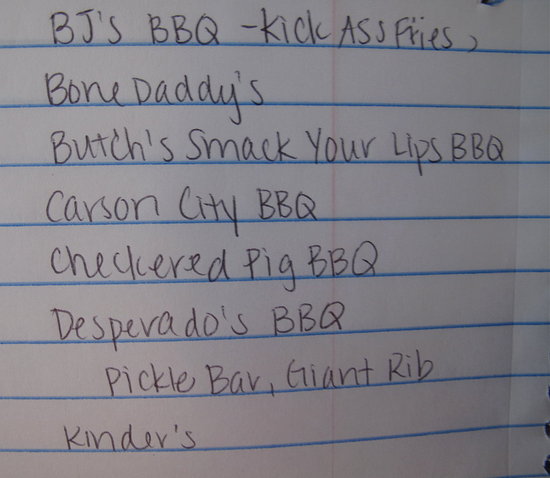 BJ's BBQ - Kick Ass Fries,
Bone Daddy's
Butch's Smack Your Lips BBQ
Carson City BBQ
Checkered Pig BBQ
Desperado's BBQ
Pickle Bar, Giant Rib
Kinder's